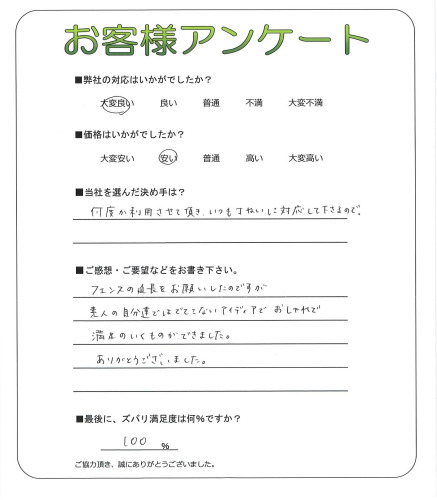 お客様アンケート
■弊社の対応はいかがでしたか？
大変良い 良い 普通 不満 大変不満
■価格はいかがでしたか？
大変安い 安い 普通 高い 大変高い
■当社を選んだ決め手は？
何度か利用させて頂き、いつも丁ねいに対応して下さるので。
■ご感想・ご要望などをお書き下さい。
フェンスの延長をお願いしたのですが
素人の自分達ではでてこないアイディアで おしゃれで
満足のいくものができました。
ありがとうございました。
■最後に、ズバリ満足度は何％ですか？
100 ％
ご協力頂き、誠にありがとうございました。